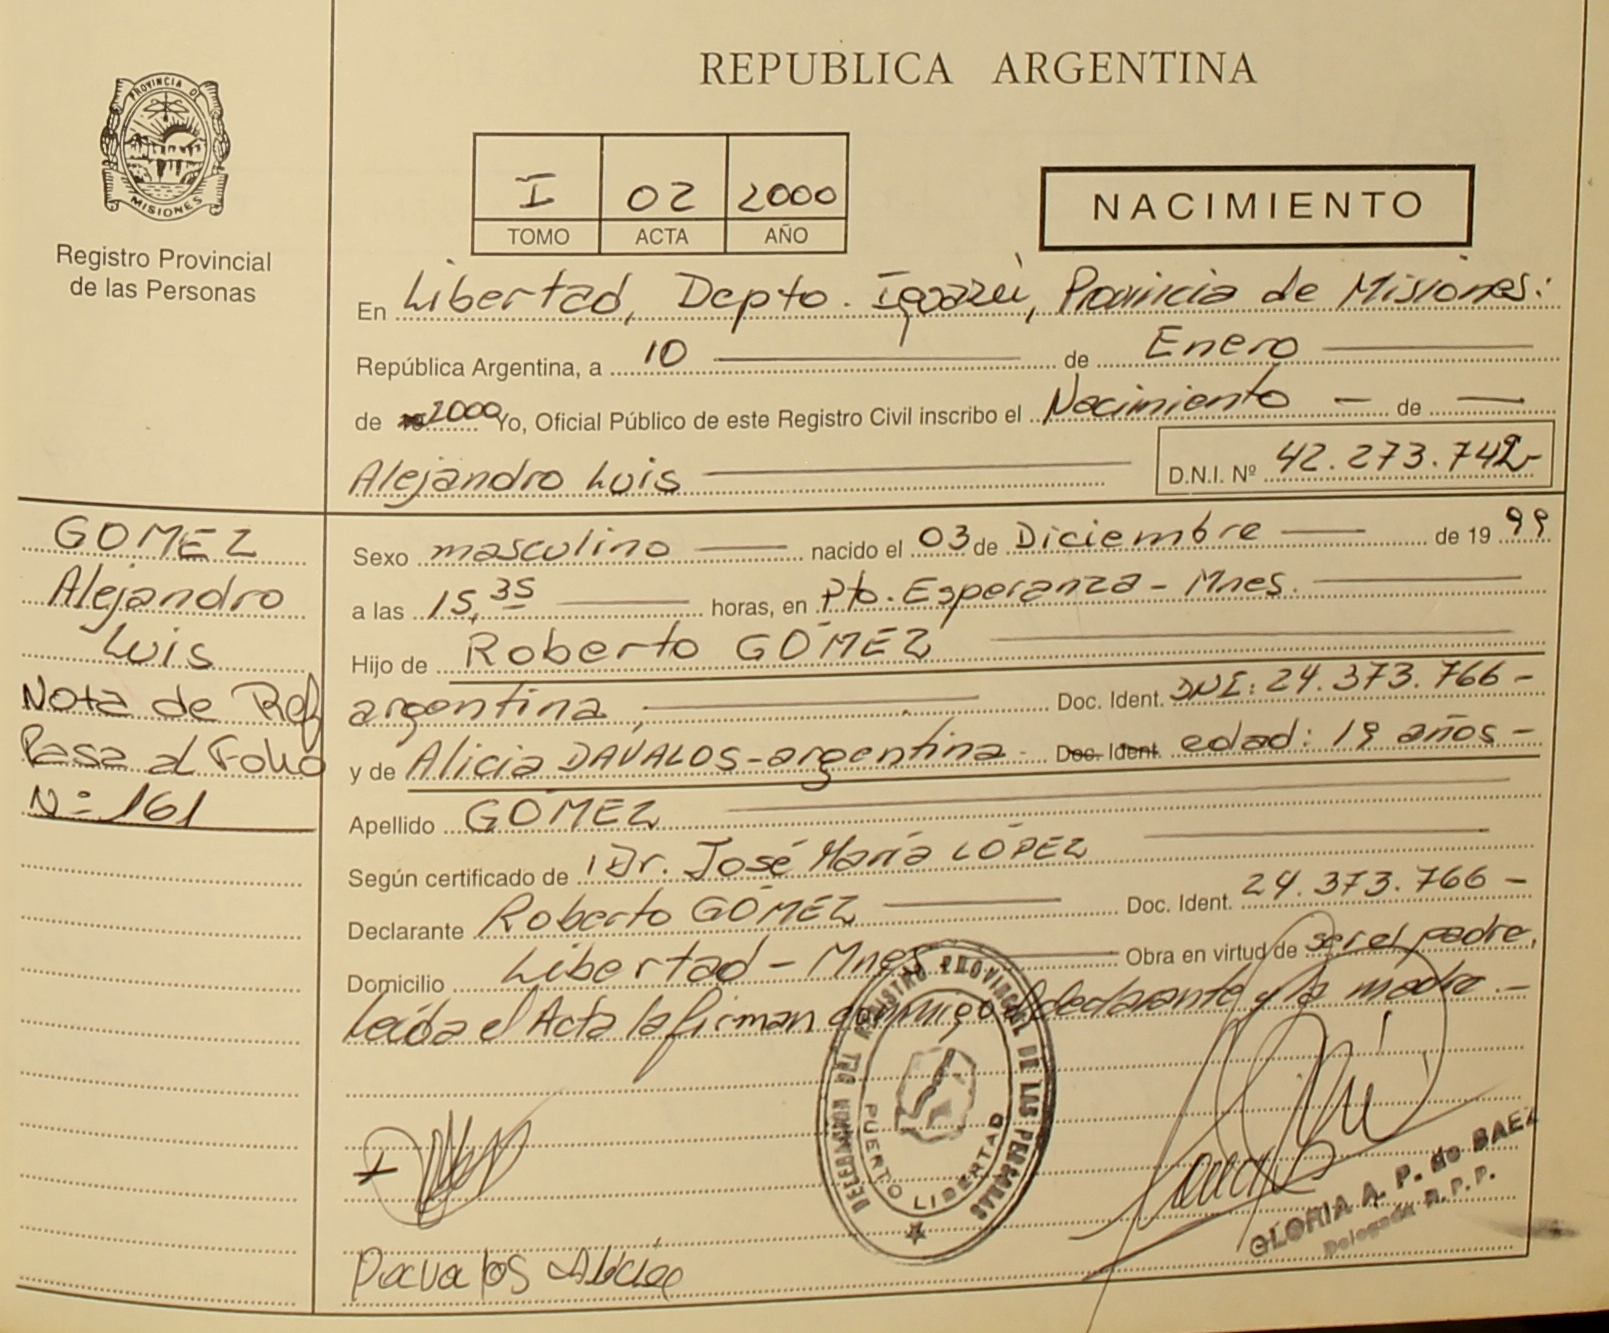 REPUBLICA ARGENTINA
PROVINCIA DE
MISIONES
Registro Provincial
de las Personas
I 02 2000
TOMO ACTA AÑO
NACIMIENTO
En Libertad, Depto. Iguazú, Provincia de Misiones:
República Argentina, a 10 de Enero
de 2000 Yo, Oficial Público de este Registro Civil inscribo el Nacimiento - de
Alejandro Luis D.N.I. Nº 42.273.742-
GOMEZ
Alejandro
Luis
Nota de Ref
Pasa al Folio
Nº 161
Sexo masculino nacido el 03 de Diciembre de 19 99
a las 15,35 horas, en Pto. Esperanza - Mnes.
Hijo de Roberto GÓMEZ
argentina, Doc. Ident. DNI: 24.373.766 -
y de Alicia DÁVALOS - argentina - Doc. Ident. edad: 19 años -
Apellido GÓMEZ
Según certificado de Dr. José María LÓPEZ
Declarante Roberto GÓMEZ Doc. Ident. 24.373.766 -
Domicilio Libertad - Mnes Obra en virtud de ser el padre.
Leída el Acta la firman conmigo el declarante y la madre. -
DELEGACION DEL REGISTRO PROVINCIAL DE LAS PERSONAS
PUERTO LIBERTAD
GLORIA A. P. de BAEZ
Delegada R.P.P.
Davalos Alicia